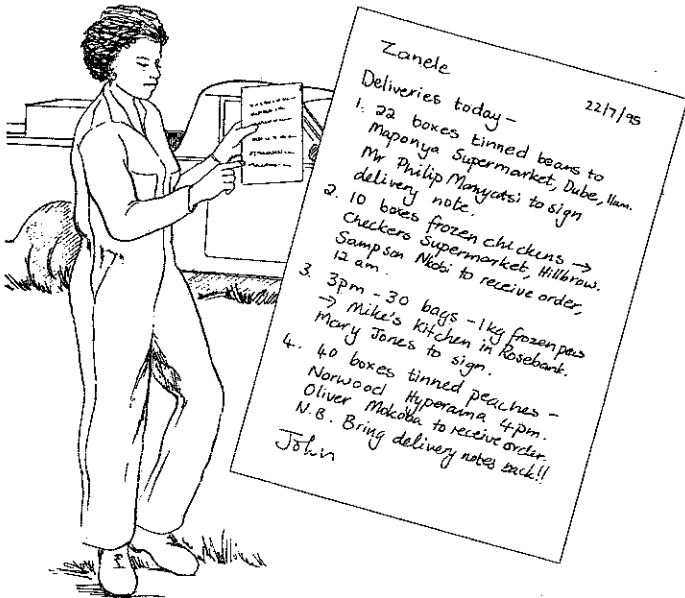 Zanele
22/7/95
Deliveries today -
1. 22 boxes tinned beans to
Maponya Supermarket, Dube, 11am.
Mr Philip Manyatsi to sign
delivery note.
2. 10 boxes frozen chickens →
Checkers Supermarket, Hillbrow.
Sampson Nkobi to receive order,
12 am.
3. 3pm - 30 bags - 1kg frozen peas
→ Mike's Kitchen in Rosebank.
Mary Jones to sign.
4. 40 boxes tinned peaches -
Norwood Hyperama 4pm.
Oliver Mokoba to receive order.
N.B. Bring delivery notes back!!
John